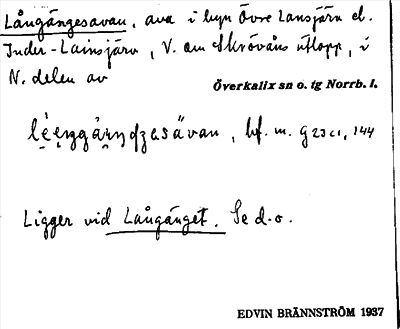 Långängesavan, ava i byn Övre Lansjärn el.
Inder-Lainsjärv, V. om Skrövåns utlopp, i
N. delen av
Överkalix sn o. tg Norrb. l.
bf. m. G 23 c1, 144
Ligger vid Långänget. Se d.o.
EDVIN BRÄNNSTRÖM 1937